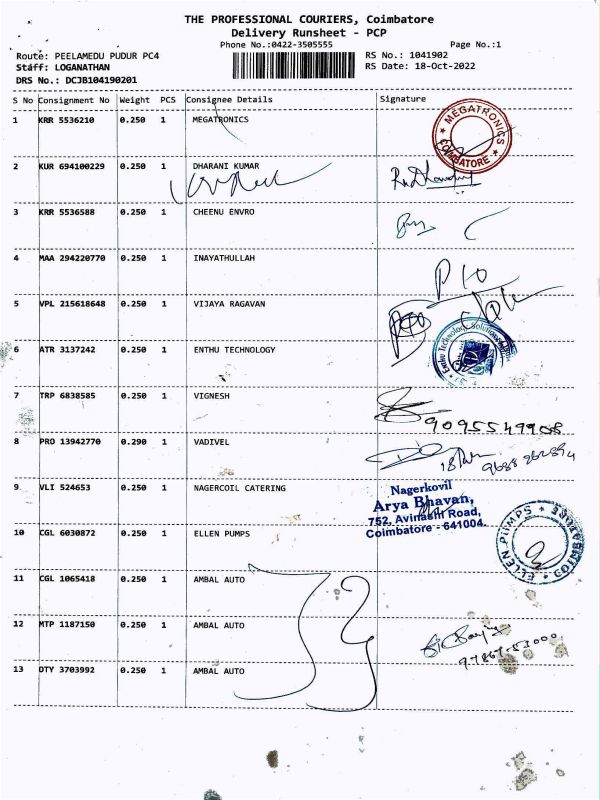 THE PROFESSIONAL COURIERS, Coimbatore
Delivery Runsheet - PCP
Phone No.:0422-3505555 Page No.:1
Route: PEELAMEDU PUDUR PC4 RS No.: 1041902
Staff: LOGANATHAN RS Date: 18-Oct-2022
DRS No.: DCJB104190201
S No Consignment No Weight PCS Consignee Details Signature
1 KRR 5536210 0.250 1 MEGATRONICS
MEGATRONICS
COIMBATORE
2 KUR 694100229 0.250 1 DHARANI KUMAR
3 KRR 5536588 0.250 1 CHEENU ENVRO
4 MAA 294220770 0.250 1 INAYATHULLAH
5 VPL 215618648 0.250 1 VIJAYA RAGAVAN
6 ATR 3137242 0.250 1 ENTHU TECHNOLOGY
Enthu Technology Solutions
7 TRP 6838585 0.250 1 VIGNESH
9095549908
8 PRO 13942770 0.290 1 VADIVEL
9 VLI 524653 0.250 1 NAGERCOIL CATERING
Nagerkovil
Arya Bhavan,
752, Avinashi Road,
Coimbatore - 641004.
10 CGL 6030872 0.250 1 ELLEN PUMPS
ELLEN PUMPS
11 CGL 1065418 0.250 1 AMBAL AUTO
12 MTP 1187150 0.250 1 AMBAL AUTO
13 OTY 3703992 0.250 1 AMBAL AUTO